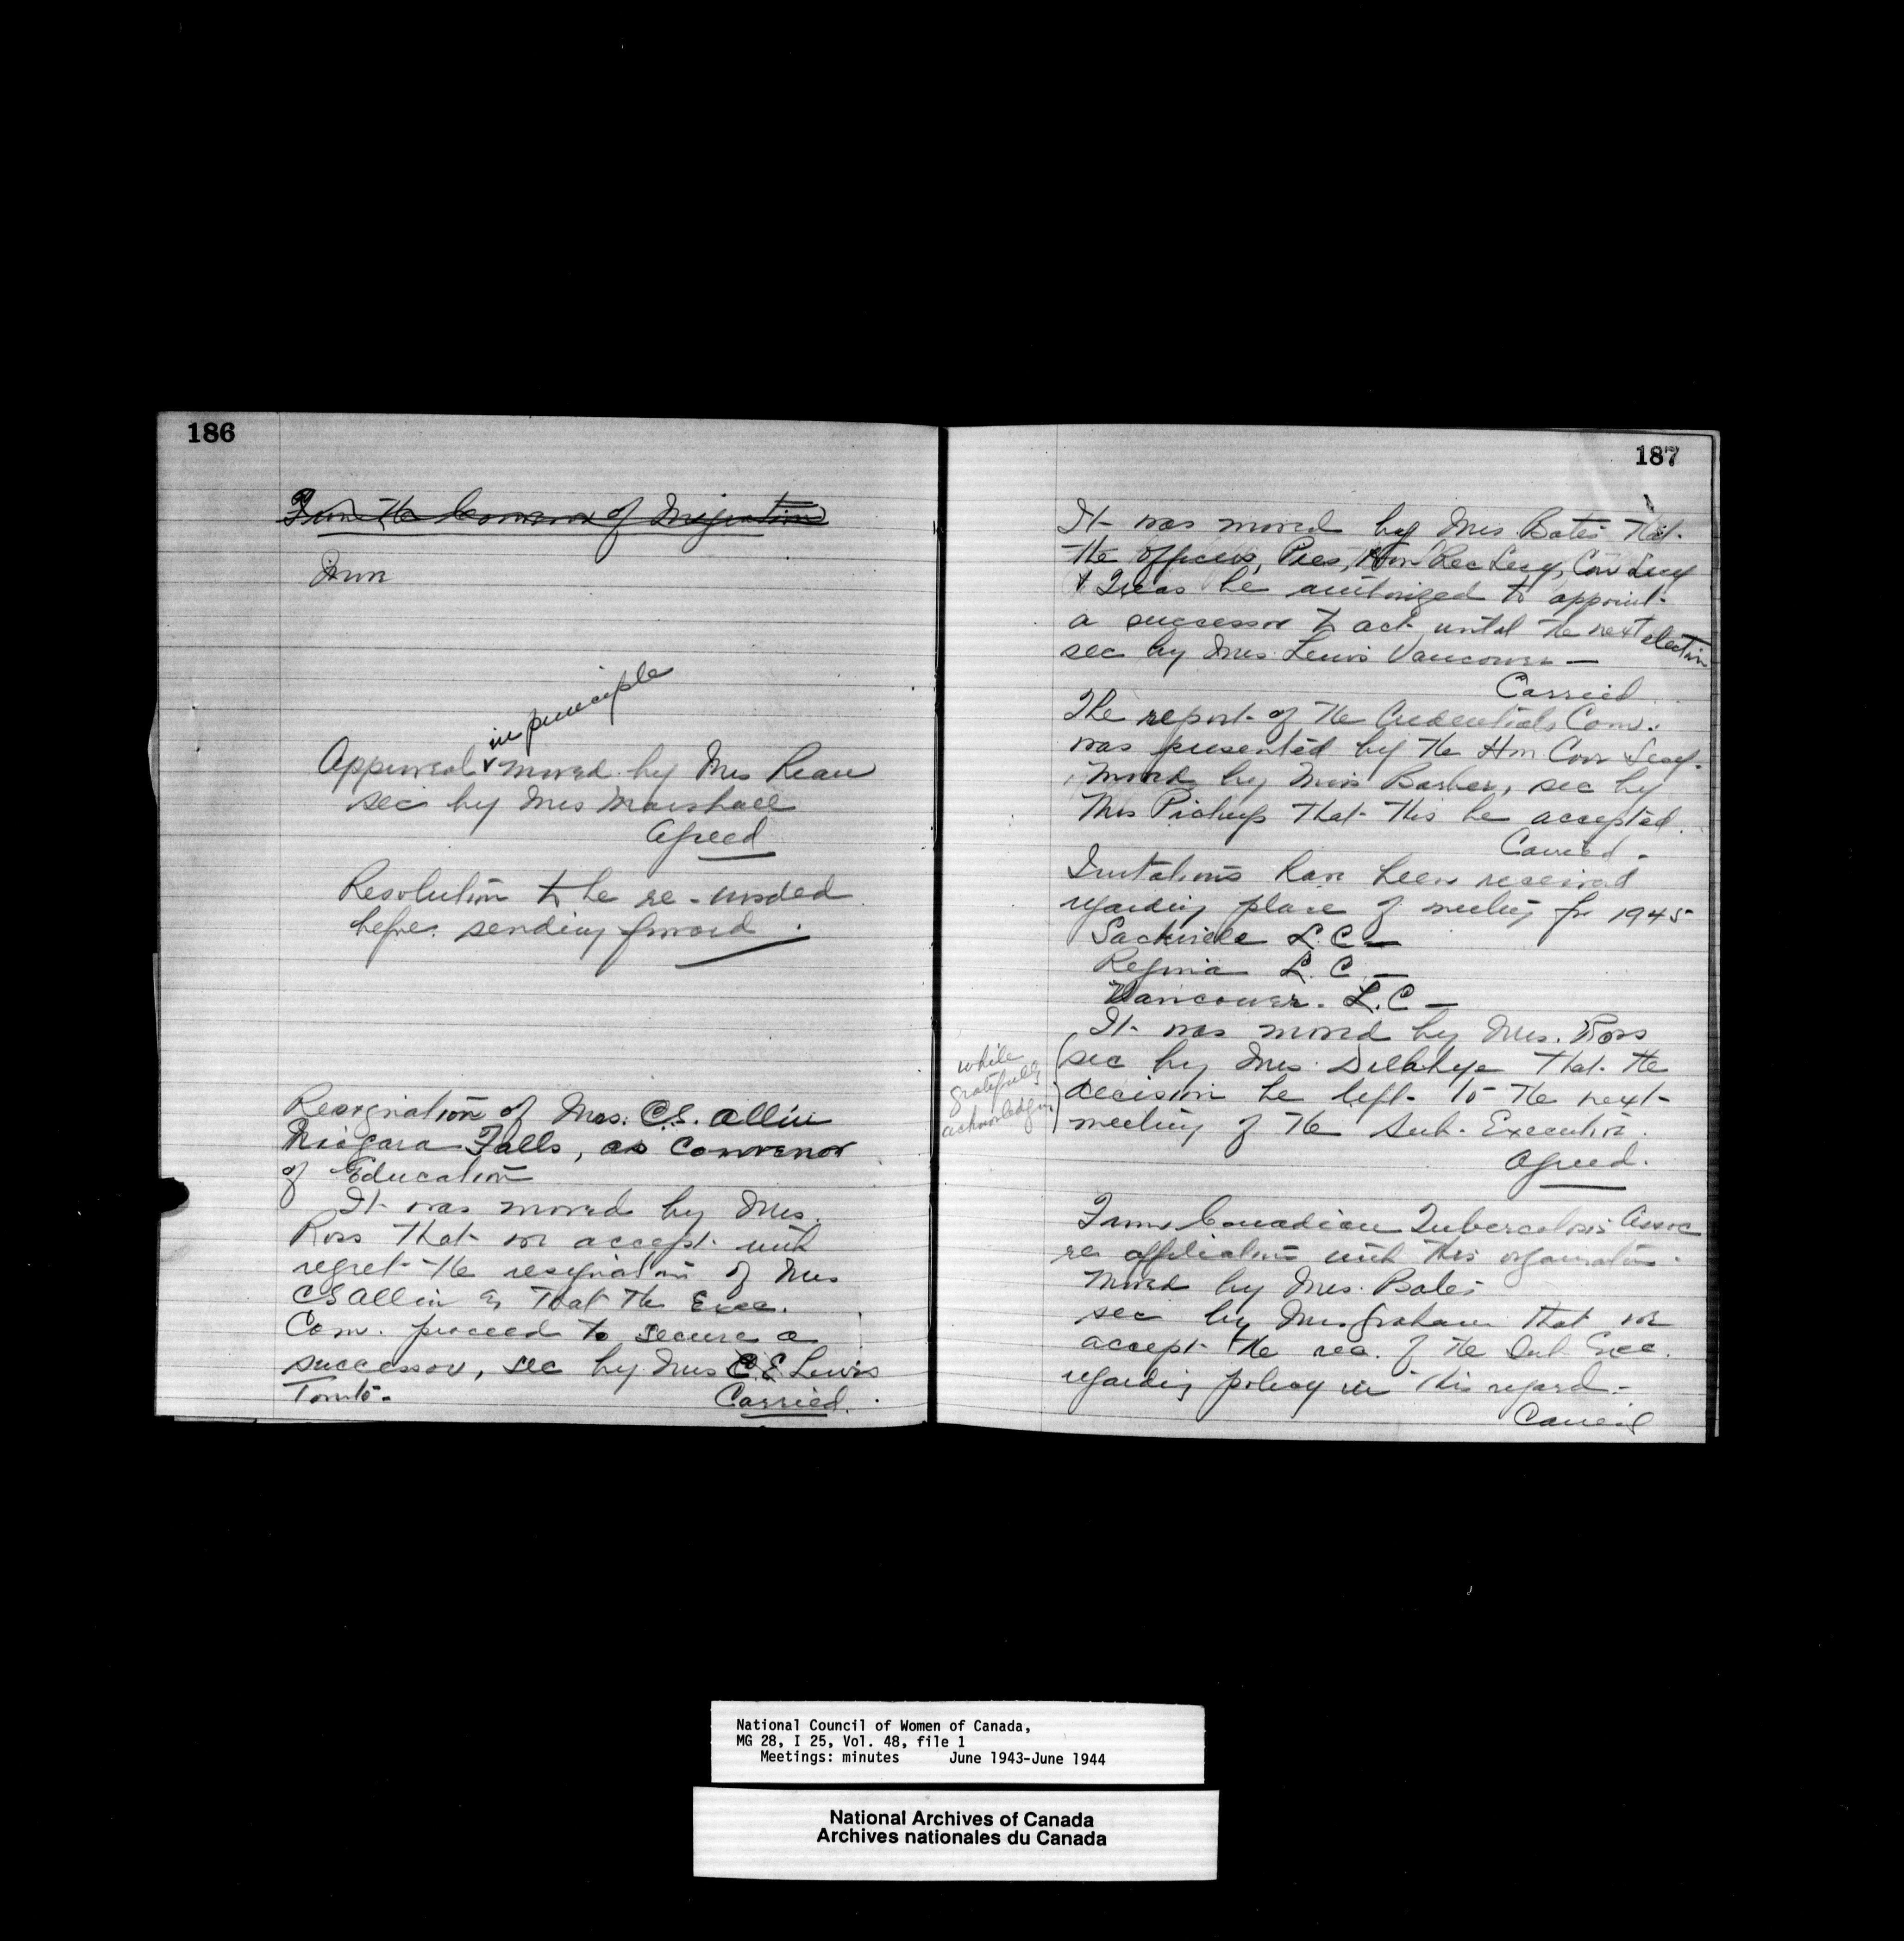 186
From the Convenor of Migration
From
in principle
Approval moved by Mrs
sec by Mrs Marshall
Agreed
Resolution to be re-worded
before sending forward.
Resignation of Mrs. C.S. Allin
Niagara Falls, as Convenor
of Education
It was moved by Mrs.
Ross that we accept with
regret the resignation of Mrs
CS Allin & that the Exec.
Com. proceed to secure a
successor, sec by Mrs C.E Lewis
Toronto.
Carried.
187
It was moved by Mrs. Bates that
the officers, Pres, Hon Rec Secy, Cor Secy
& Treas be authorized to appoint
a successor to act until the next election
sec by Mrs. Lewis Vancouver —
Carried
The report of the Credentials Com.
was presented by the Hon Corr Secy.
Moved by Miss Barber, sec by
Mrs Pickup that this be accepted.
Carried.
Invitations have been received
regarding place of meeting for 1945
Sackville L.C —
Regina L.C. —
Vancouver. L.C —
It was moved by Mrs. Ross
while
gratefully
acknowledging
sec by Mrs. that the
decision be left to the next
meeting of the Sub. Executive.
Agreed.
From Canadian Tuberculosis Assoc
re affiliation with this organization.
Moved by Mrs. Bates
sec by Mrs Graham that we
accept the rec. of the Sub Exec.
regarding policy in this regard.
Carried
National Council of Women of Canada,
MG 28, I 25, Vol. 48, file 1
Meetings: minutes June 1943-June 1944
National Archives of Canada
Archives nationales du Canada